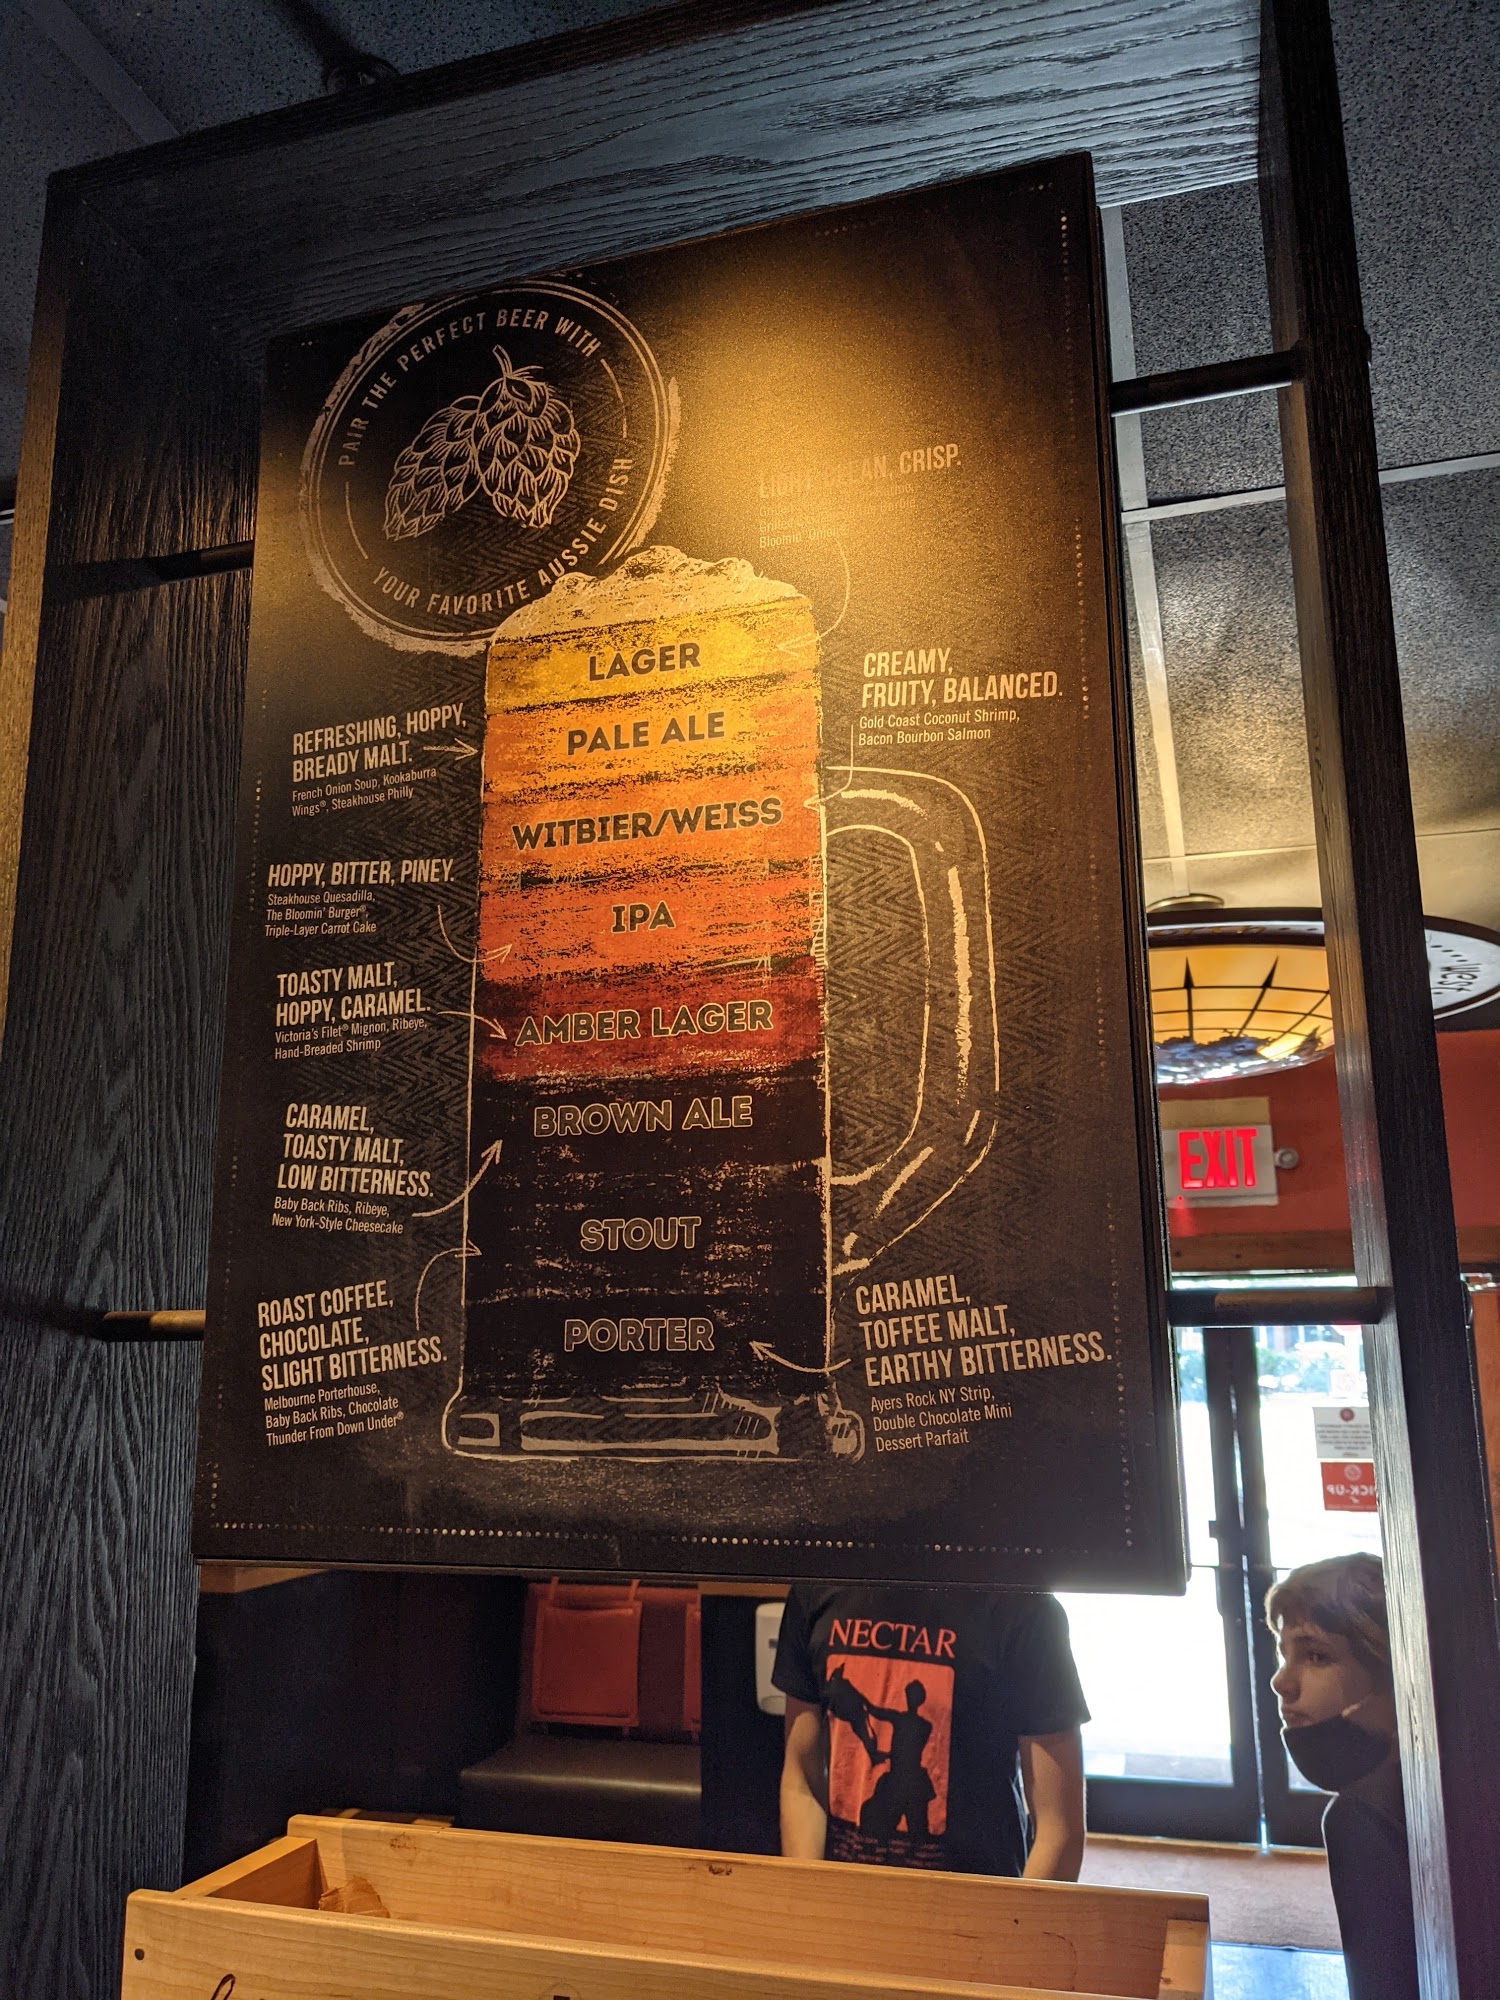 PAIR THE PERFECT BEER WITH
YOUR FAVORITE AUSSIE DISH
CLEAN, CRISP.
Bloomin' Onion
LAGER
PALE ALE
WITBIER/WEISS
IPA
AMBER LAGER
BROWN ALE
STOUT
PORTER
REFRESHING, HOPPY,
BREADY MALT.
French Onion Soup, Kookaburra
Wings®, Steakhouse Philly
CREAMY,
FRUITY, BALANCED.
Gold Coast Coconut Shrimp,
Bacon Bourbon Salmon
HOPPY, BITTER, PINEY.
Steakhouse Quesadilla,
The Bloomin' Burger®,
Triple-Layer Carrot Cake
TOASTY MALT,
HOPPY, CARAMEL.
Victoria's Filet® Mignon, Ribeye,
Hand-Breaded Shrimp
CARAMEL,
TOASTY MALT,
LOW BITTERNESS.
Baby Back Ribs, Ribeye,
New York-Style Cheesecake
ROAST COFFEE,
CHOCOLATE,
SLIGHT BITTERNESS.
Melbourne Porterhouse,
Baby Back Ribs, Chocolate
Thunder From Down Under®
CARAMEL,
TOFFEE MALT,
EARTHY BITTERNESS.
Ayers Rock NY Strip,
Double Chocolate Mini
Dessert Parfait
EXIT
NECTAR